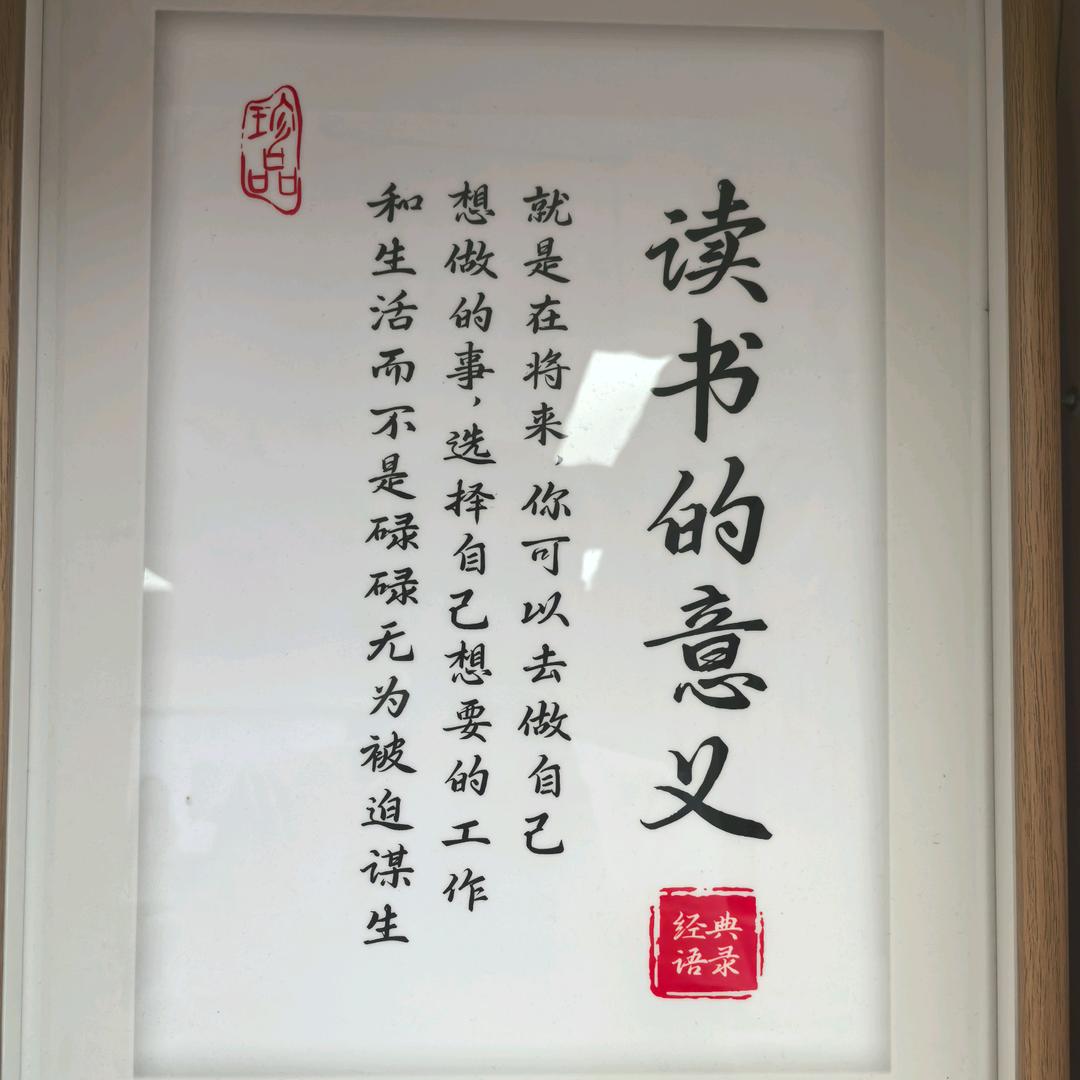 读书的意义
经典
语录
就是在将来，你可以去做自己
想做的事，选择自己想要的工作
和生活而不是碌碌无为被迫谋生
珍品